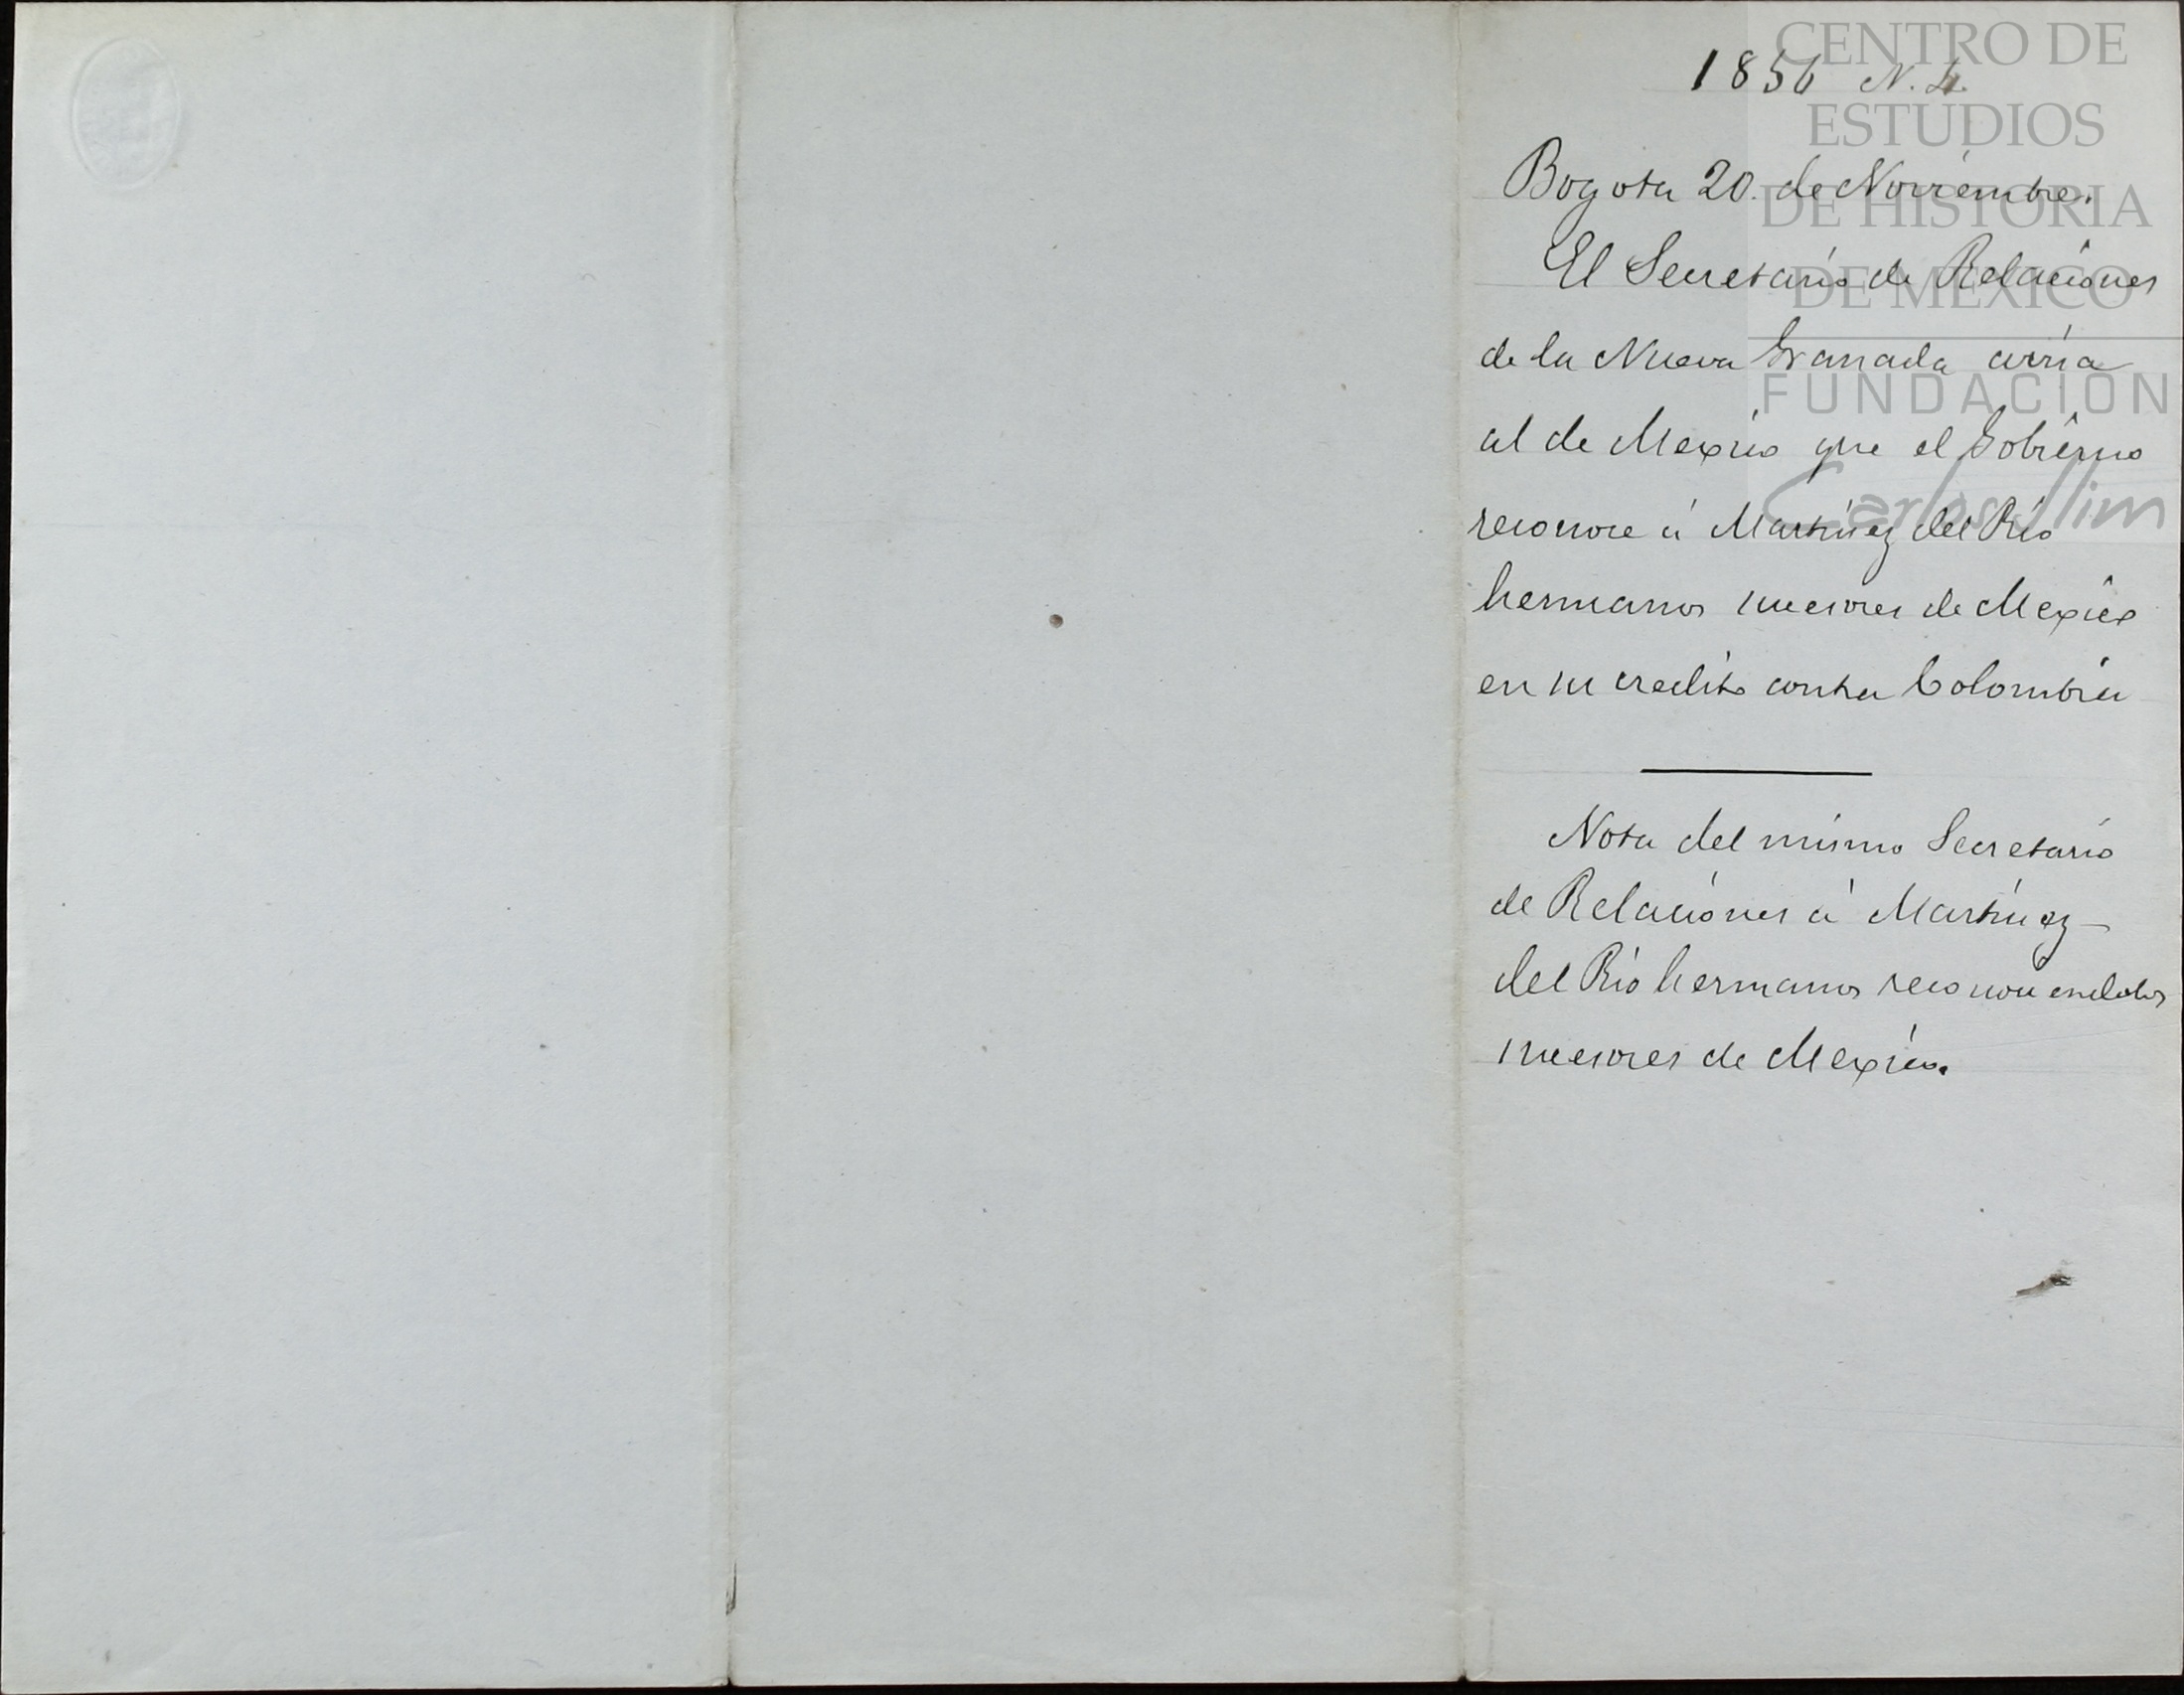 1856 N. 4.
Bogota 20. de Noviembre.
El Secretario de Relaciones
de la Nueva Granada avisa
al de Mexico que el Gobierno
reconoce á Martinez del Rio
hermanos sucesores de Mexico
en su credito contra Colombia
Nota del mismo Secretario
de Relaciones á Martinez
del Rio hermanos reconociendolos
sucesores de Mexico.
CENTRO DE
ESTUDIOS
DE HISTORIA
DE MEXICO
FUNDACIÓN
Carlos Slim